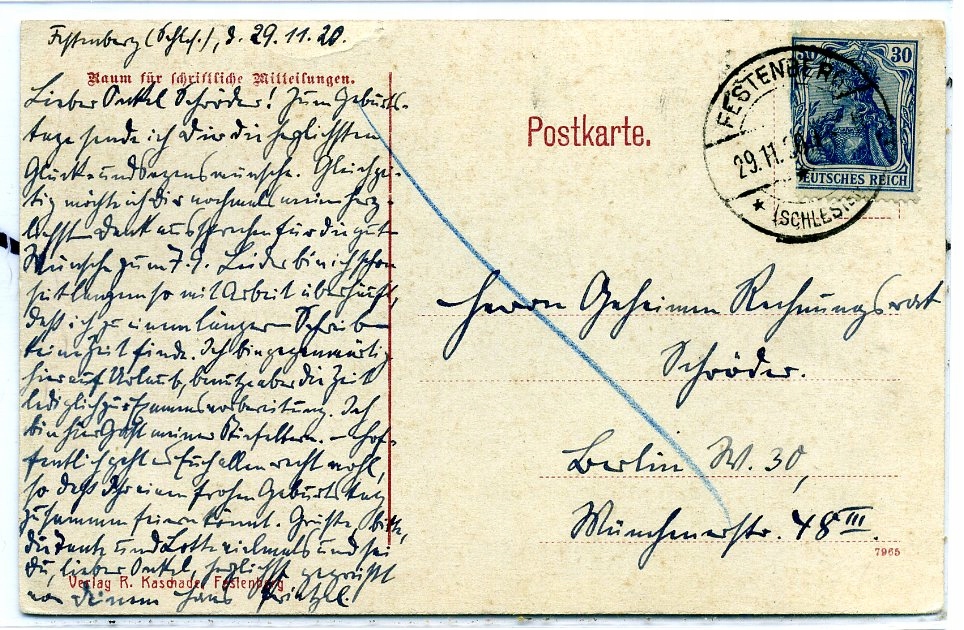 Festenberg (Schles.), d. 29.11.20.
Raum für schriftliche Mitteilungen.
Lieber Onkel Schröder! Zum Geburts-
tage sende ich Dir die herzlichsten
Glück- und Segenswünsche. Gleichzei-
tig möchte ich Dir nochmals meinen herz-
lichsten Dank aussprechen für die guten
Wünsche zum 7.9. Leider bin ich schon
seit langem so mit Arbeit überhäuft,
daß ich zu einem längeren Schreiben
keine Zeit finde. Ich bin gegenwärtig
hier auf Urlaub, benutze aber die Zeit
lediglich zur Examensvorbereitung. Ich
bin hier Gast meiner Stiefeltern. – Hof-
fentlich geht es Euch allen recht wohl,
so daß Ihr einen frohen Geburtstag
zusammen feiern könnt. Grüße, bitte,
die Tante und Lotte vielmals und sei
Du, lieber Onkel, herzlichst gegrüßt
von Deinem Hans
Verlag R. Kaschade, Festenberg
Postkarte.
30
DEUTSCHES REICH
FESTENBERG
29.11.
(SCHLESIEN)
Herrn Geheimen Rechnungsrat
Schröder.
Berlin W. 30,
Münchenerstr. 48 III.
7965